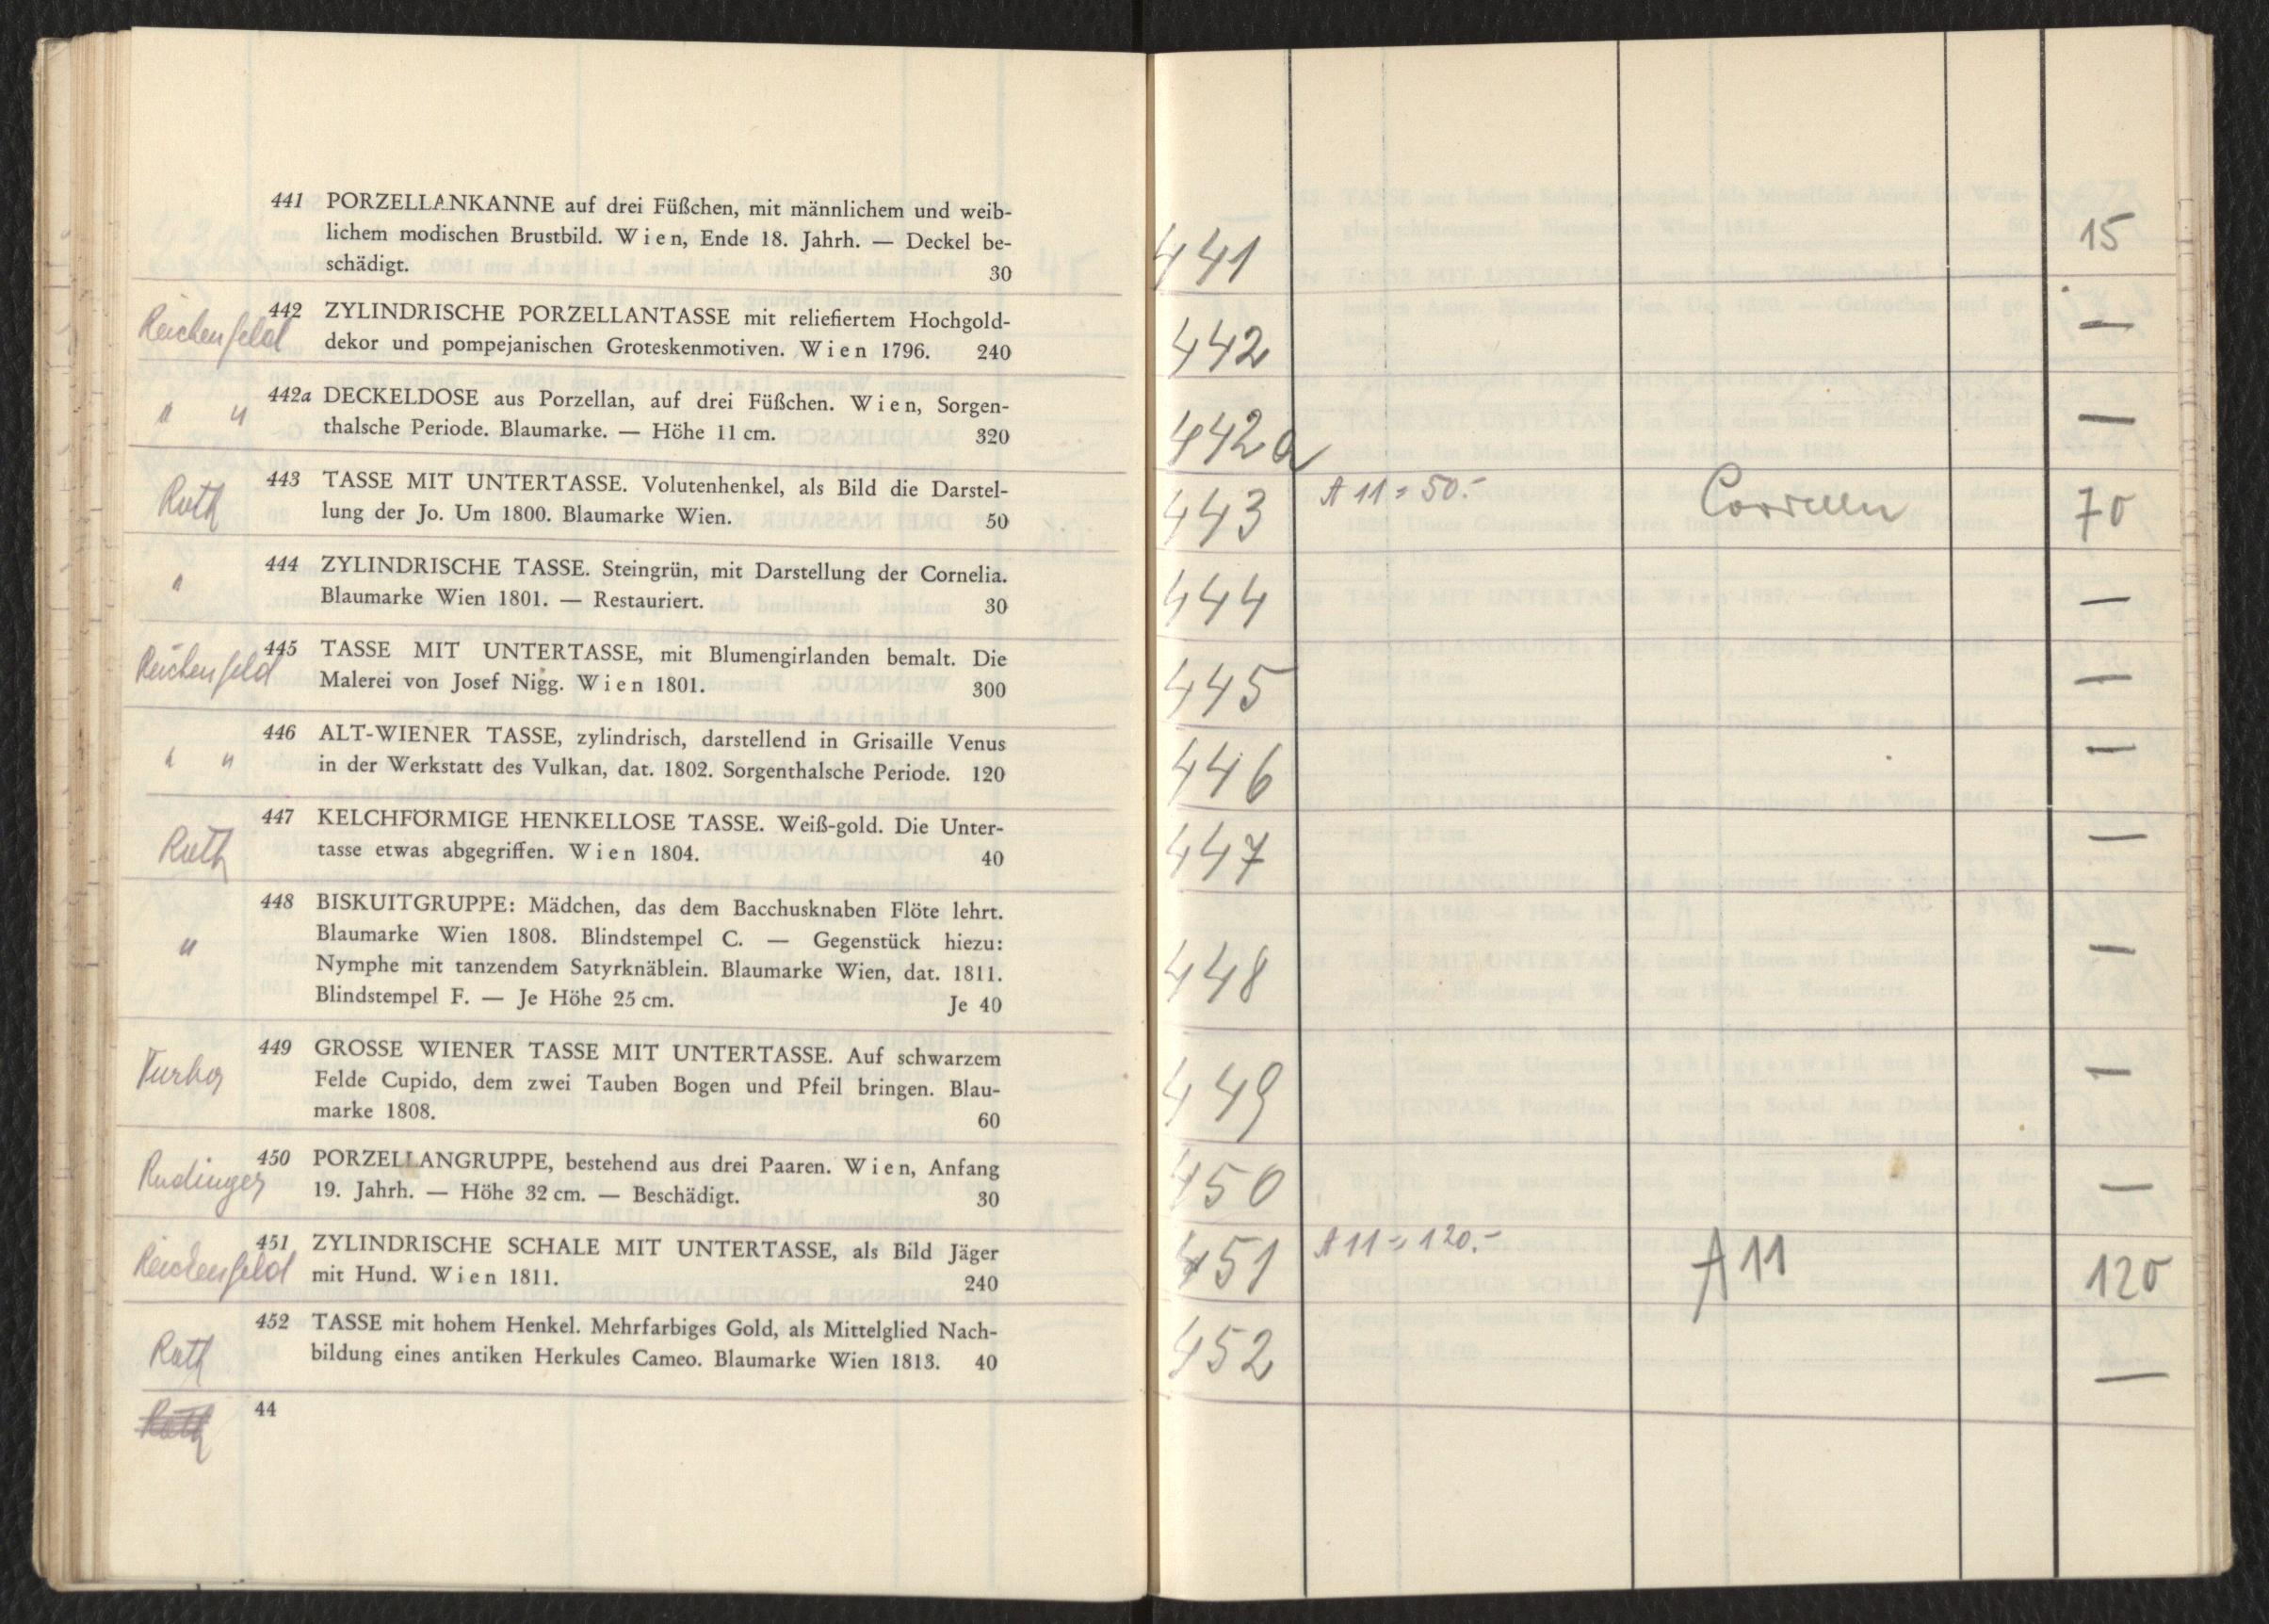 441 PORZELLANKANNE auf drei Füßchen, mit männlichem und weib-
lichem modischen Brustbild. Wien, Ende 18. Jahrh. — Deckel be-
schädigt. 30
Reichenfeld
442 ZYLINDRISCHE PORZELLANTASSE mit reliefiertem Hochgold-
dekor und pompejanischen Groteskenmotiven. Wien 1796. 240
" "
442a DECKELDOSE aus Porzellan, auf drei Füßchen. Wien, Sorgen-
thalsche Periode. Blaumarke. — Höhe 11 cm. 320
Roth
443 TASSE MIT UNTERTASSE. Volutenhenkel, als Bild die Darstel-
lung der Jo. Um 1800. Blaumarke Wien. 50
"
444 ZYLINDRISCHE TASSE. Steingrün, mit Darstellung der Cornelia.
Blaumarke Wien 1801. — Restauriert. 30
Reichenfeld
445 TASSE MIT UNTERTASSE, mit Blumengirlanden bemalt. Die
Malerei von Josef Nigg. Wien 1801. 300
" "
446 ALT-WIENER TASSE, zylindrisch, darstellend in Grisaille Venus
in der Werkstatt des Vulkan, dat. 1802. Sorgenthalsche Periode. 120
Roth
447 KELCHFÖRMIGE HENKELLOSE TASSE. Weiß-gold. Die Unter-
tasse etwas abgegriffen. Wien 1804. 40
"
448 BISKUITGRUPPE: Mädchen, das dem Bacchusknaben Flöte lehrt.
Blaumarke Wien 1808. Blindstempel C. — Gegenstück hiezu:
Nymphe mit tanzendem Satyrknäblein. Blaumarke Wien, dat. 1811.
Blindstempel F. — Je Höhe 25 cm. Je 40
449 GROSSE WIENER TASSE MIT UNTERTASSE. Auf schwarzem
Felde Cupido, dem zwei Tauben Bogen und Pfeil bringen. Blau-
marke 1808. 60
Rudinger
450 PORZELLANGRUPPE, bestehend aus drei Paaren. Wien, Anfang
19. Jahrh. — Höhe 32 cm. — Beschädigt. 30
Reichenfeld
451 ZYLINDRISCHE SCHALE MIT UNTERTASSE, als Bild Jäger
mit Hund. Wien 1811. 240
Roth
452 TASSE mit hohem Henkel. Mehrfarbiges Gold, als Mittelglied Nach-
bildung eines antiken Herkules Cameo. Blaumarke Wien 1813. 40
Roth
44
441 15
442 —
442a —
443 A 11 = 50.- 70
444 —
445 —
446 —
447 —
448 —
449 —
450 —
451 A 11 = 120.- A 11 120
452 —